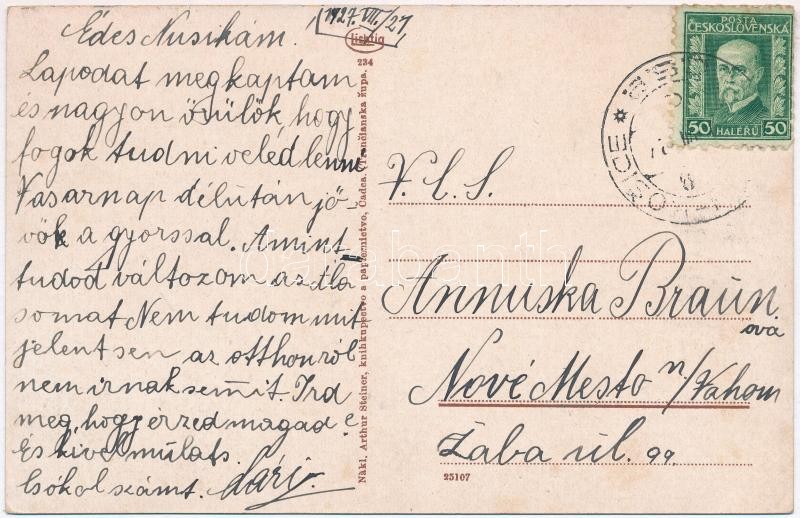 1927. VII./27.
Lichtig
234
Édes Nusikám.
Lapodat megkaptam
és nagyon örülök, hogy
fogok tudni veled lenni
Vasarnap délután jö-
vök a gyorssal. Amint
tudod változom az álla
somat Nem tudom mit
jelentsen az otthonról
nem irnak semmit. Ird
meg, hogy érzed magad e
És kivel mulats.
Csókol számt. Sári.
Nákl. Arthur Steiner, knihkupectvo a papiernictvo, Čadca. (Trenčianska župa.
POSTA
ČESKOSLOVENSKÁ
50 HALÉŘŮ 50
V. C. S.
Annuska Braun
ova
Nové Mesto n/Vahom
Žaba úl. 99.
25107